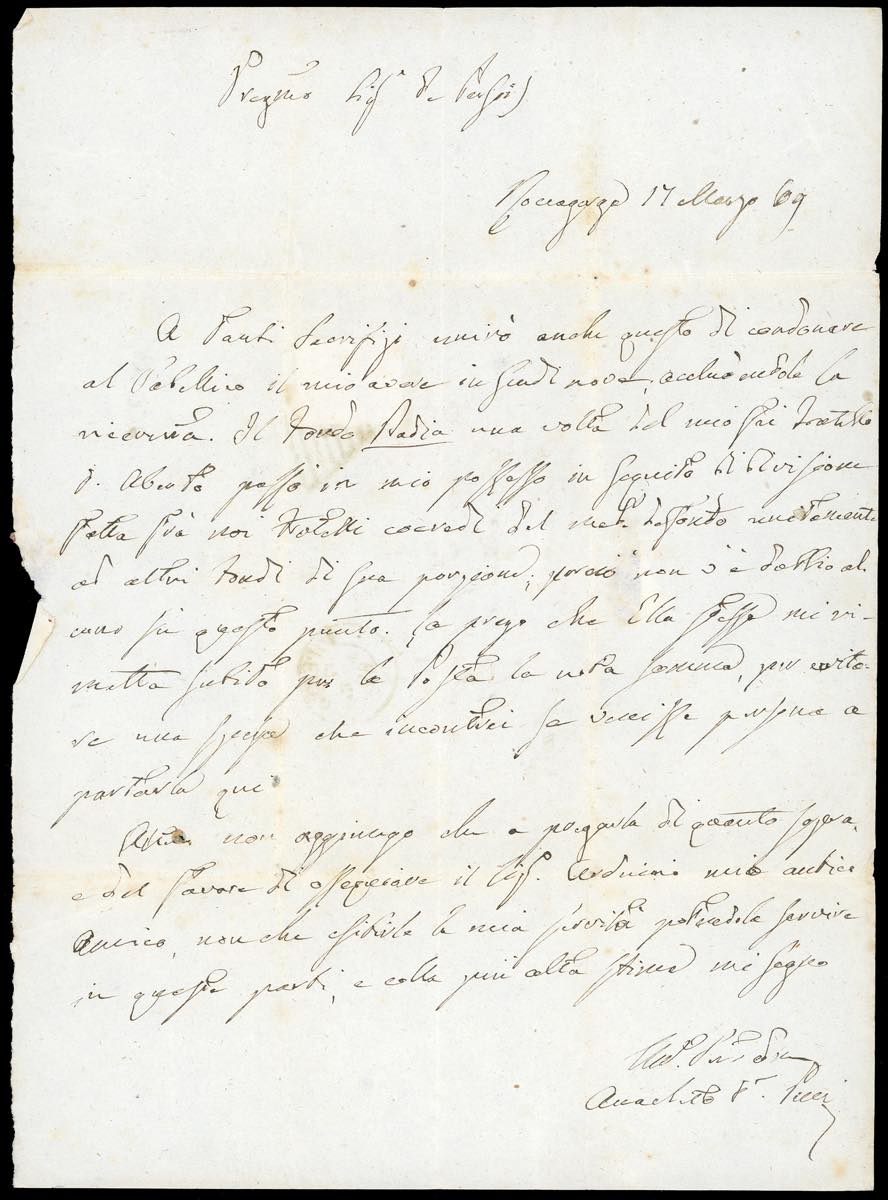 Pregmo Sigr De Persiis
Roccagorga 17 Marzo 69
A tanti Sacrifizi unirò anche questo di condonare
al Pubblico il mio avere in scudi nove, accludendole la
ricevuta. Il fondo Badia una volta del mio fu fratello
D. Alberto passò in mio possesso in seguito di divisione
fatta frà noi fratelli coeredi del med. defonto unitamente
ad altri fondi di sua porzione, perciò non v'è dubbio al-
cuno su questo punto. La prego che Ella stessa mi ri-
metta subito per la Posta la nota somma, per evita-
re una spesa che incontrei se venisse persona a
portarla qui
non aggiungo che a pregarla di quanto sopra,
e del favore di ossequiare il Sigr. Arduini mio antico
Amico, non che esibirle la mia servitù potendola servire
in queste parti, e colla più alta stima mi segno
Anacleto Pucci